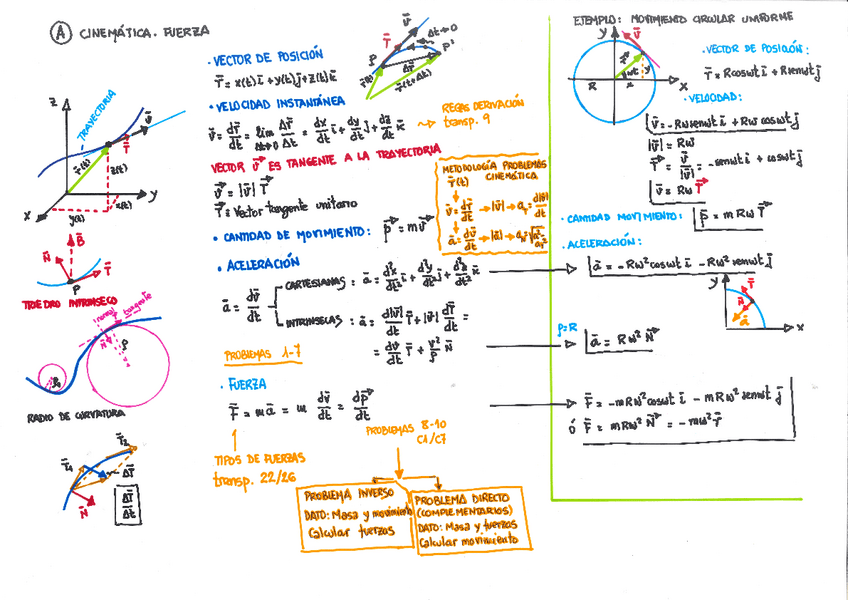 A CINEMÁTICA. FUERZA
Z
TRAYECTORIA
v⃗
T⃗
r⃗(t)
z(t)
X
Y
x(t)
y(t)
B⃗
N⃗
T⃗
P
TRIEDRO INTRÍNSECO
normal
tangente
N⃗
ρ
ρ
RADIO DE CURVATURA
T⃗₁
T⃗₂
ΔT⃗
N⃗
ΔT⃗/Δt
• VECTOR DE POSICIÓN
r⃗ = x(t) i⃗ + y(t) j⃗ + z(t) k⃗
v⃗
T⃗
Δt→0
P
P'
Δr⃗
r⃗(t)
r⃗(t+Δt)
• VELOCIDAD INSTANTÁNEA
v⃗ = dr⃗/dt = lim Δt→0 Δr⃗/Δt = dx/dt i⃗ + dy/dt j⃗ + dz/dt k⃗
REGLAS DERIVACIÓN
transp. 9
VECTOR v⃗ ES TANGENTE A LA TRAYECTORIA
v⃗ = |v⃗| T⃗
T⃗ = Vector tangente unitario
METODOLOGÍA PROBLEMAS
CINEMÁTICA
r⃗(t)
v⃗ = dr⃗/dt → |v⃗| → a_T = d|v⃗|/dt
a⃗ = dv⃗/dt → |a⃗| → a_N = √(a² - a_T²)
• CANTIDAD DE MOVIMIENTO: p⃗ = mv⃗
• ACELERACIÓN
a⃗ = dv⃗/dt
CARTESIANAS: a⃗ = d²x/dt² i⃗ + d²y/dt² j⃗ + d²z/dt² k⃗
INTRÍNSECAS: a⃗ = d|v⃗|/dt T⃗ + |v⃗| dT⃗/dt =
= dv/dt T⃗ + v²/ρ N⃗
PROBLEMAS 1-7
• FUERZA
F⃗ = m a⃗ = m dv⃗/dt = dp⃗/dt
TIPOS DE FUERZAS
transp. 22/26
PROBLEMAS 8-10
C1/C7
PROBLEMA INVERSO
DATO: Masa y movimiento
Calcular fuerzas
PROBLEMA DIRECTO
(COMPLEMENTARIOS)
DATO: Masa y fuerzas
Calcular movimiento
EJEMPLO: MOVIMIENTO CIRCULAR UNIFORME
Y
v⃗
ωt
y
R
x
X
• VECTOR DE POSICIÓN:
r⃗ = R cosωt i⃗ + R senωt j⃗
• VELOCIDAD:
v⃗ = -Rω senωt i⃗ + Rω cosωt j⃗
|v⃗| = Rω
T⃗ = v⃗/|v⃗| = -senωt i⃗ + cosωt j⃗
v⃗ = Rω T⃗
• CANTIDAD MOVIMIENTO: p⃗ = m Rω T⃗
• ACELERACIÓN:
a⃗ = -Rω² cosωt i⃗ - Rω² senωt j⃗
Y
T⃗
N⃗
a⃗
X
ρ=R
a⃗ = Rω² N⃗
F⃗ = -mRω² cosωt i⃗ - mRω² senωt j⃗
ó F⃗ = mRω² N⃗ = -mω² r⃗